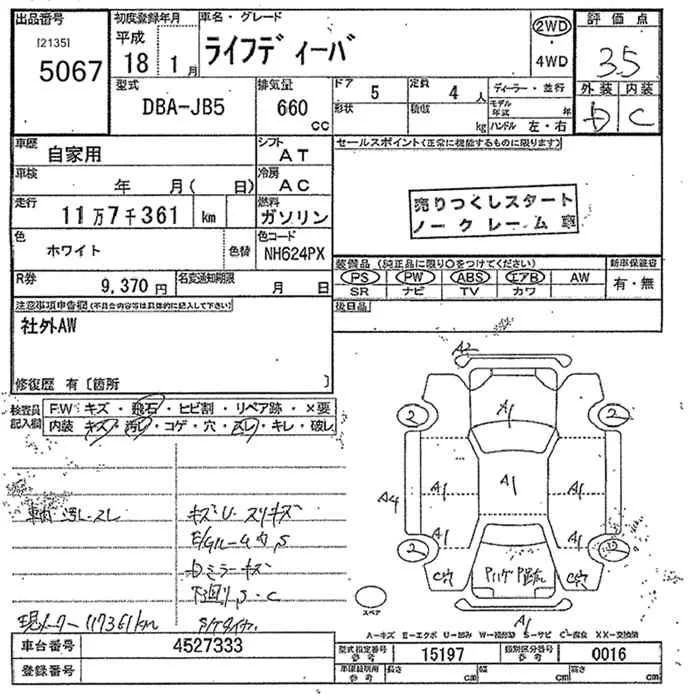 出品番号
[2135]
5067
初度登録年月
平成
18 1月
車名・グレード
ライフディーバ
2WD
4WD
評価点
3.5
外装 内装
D C
型式
DBA-JB5
排気量
660
cc
ドア
5
定員
4 人
形状
積載
kg
ディーラー・並行
モデル
年式 年
ハンドル 左・右
車歴
自家用
シフト
AT
車検
年 月( 日)
冷房
AC
走行
11万7千361 km
燃料
ガソリン
色
ホワイト
色替
色コード
NH624PX
R券
9,370 円
名変通知期限
月 日
セールスポイント(正常に機能するものに限ります)
売りつくしスタート
ノークレーム
装備品(純正品に限り○をつけてください)
新車保証書
PS PW ABS エアB AW
SR ナビ TV カワ
有・無
後日品
注意事項申告欄(不具合内容等は具体的に記入して下さい)
社外AW
修復歴 有〔箇所 〕
検査員
記入欄
F.W キズ・飛石・ヒビ割・リペア跡・×要
内装 キズ・汚レ・コゲ・穴・スレ・キレ・破レ
車内 汚レ・スレ
キズ・U・スリキズ
E/Gルーム内 S
ミラーキズ
下回り S・C
現メーター 117361km
A2
2
A1
2
A4
A1
A1
A1
A1
A1
2
2
C穴
C穴
A1
スペア
A-キズ E-エクボ U-凹み W-補修跡 S-サビ C-腐食 XX-交換済
車台番号
4527333
登録番号
型式指定番号
参考
15197
類別区分番号
参考
0016
車庫証明用
参考
長さ cm
幅 cm
高さ cm